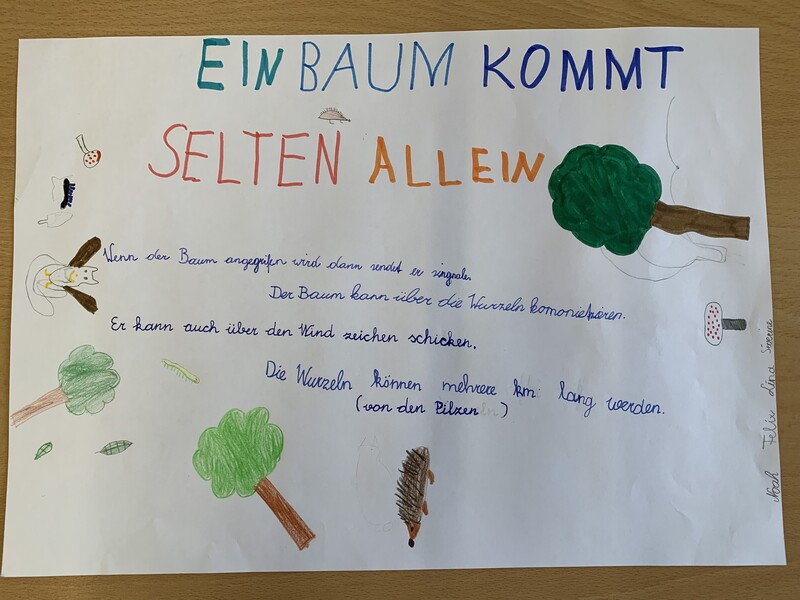 EIN BAUM KOMMT
SELTEN ALLEIN
Wenn der Baum angegrifen wird dann sendet er singnale.
Der Baum kann über die Wurzeln komonietzieren.
Er kann auch über den Wind zeichen schicken.
Die Wurzeln können mehrere km lang werden.
(von den Pilzen )
Noah Felix Lina